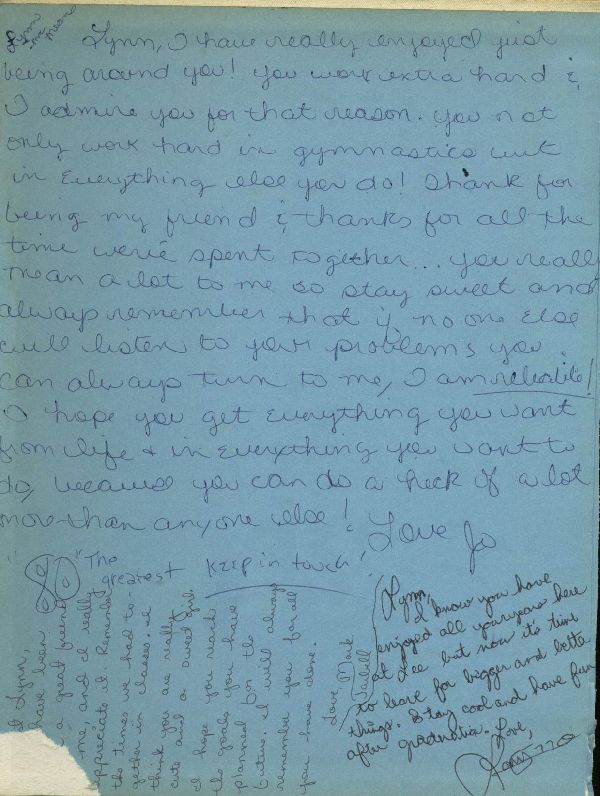 Lynn
me
means
Lynn, I have really enjoyed just
being around you! You work extra hard &
I admire you for that reason. You not
only work hard in gymnastics but
in everything else you do! Thank for
being my friend & thanks for all the
time we've spent together... you really
mean a lot to me so stay sweet and
always remember that if no one else
will listen to your problems you
can always turn to me, I am reliable!
I hope you get everything you want
from life & in everything you want to
do, because you can do a heck of a lot
more than anyone else!
Love Jo
80 "The
greatest
Keep in touch!
Lynn,
have been
a good friend
me, and I really
appreciate it. Remember
the times we had to-
gether in classes. I
think you are really
cute and a sweet girl
I hope you reach
the goals you have
planned for the
future. I will always
remember you for all
you have done.
Love, Mark
Lynn,
I know you have
enjoyed all your years here
at Lee but now it's time
to leave for bigger and better
things. Stay cool and have fun
after graduation. Love,